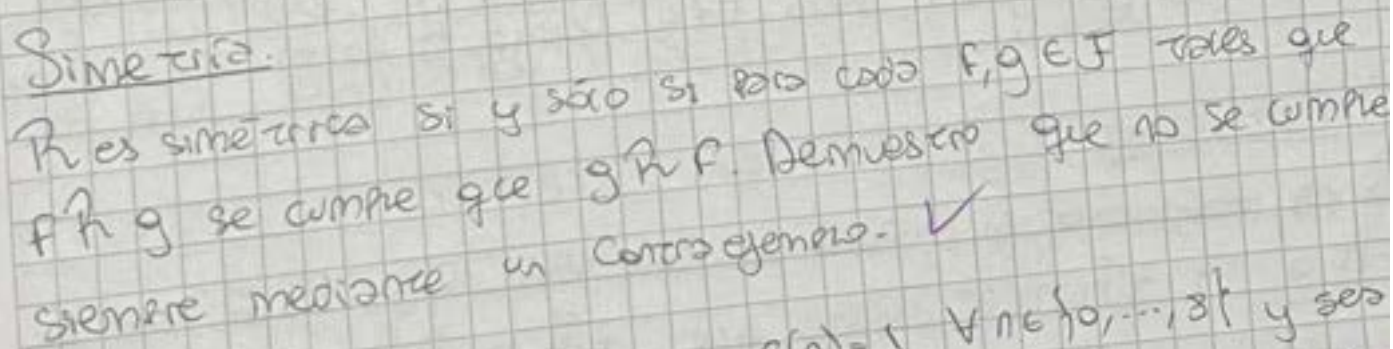 Simetría.
R es simétrica si y sólo si para cada f,g ∈ F tales que
f R g se cumple que g R f. Demuestro que no se cumple
siempre mediante un contraejemplo. ✓
∀n∈{0,...,3} y sea